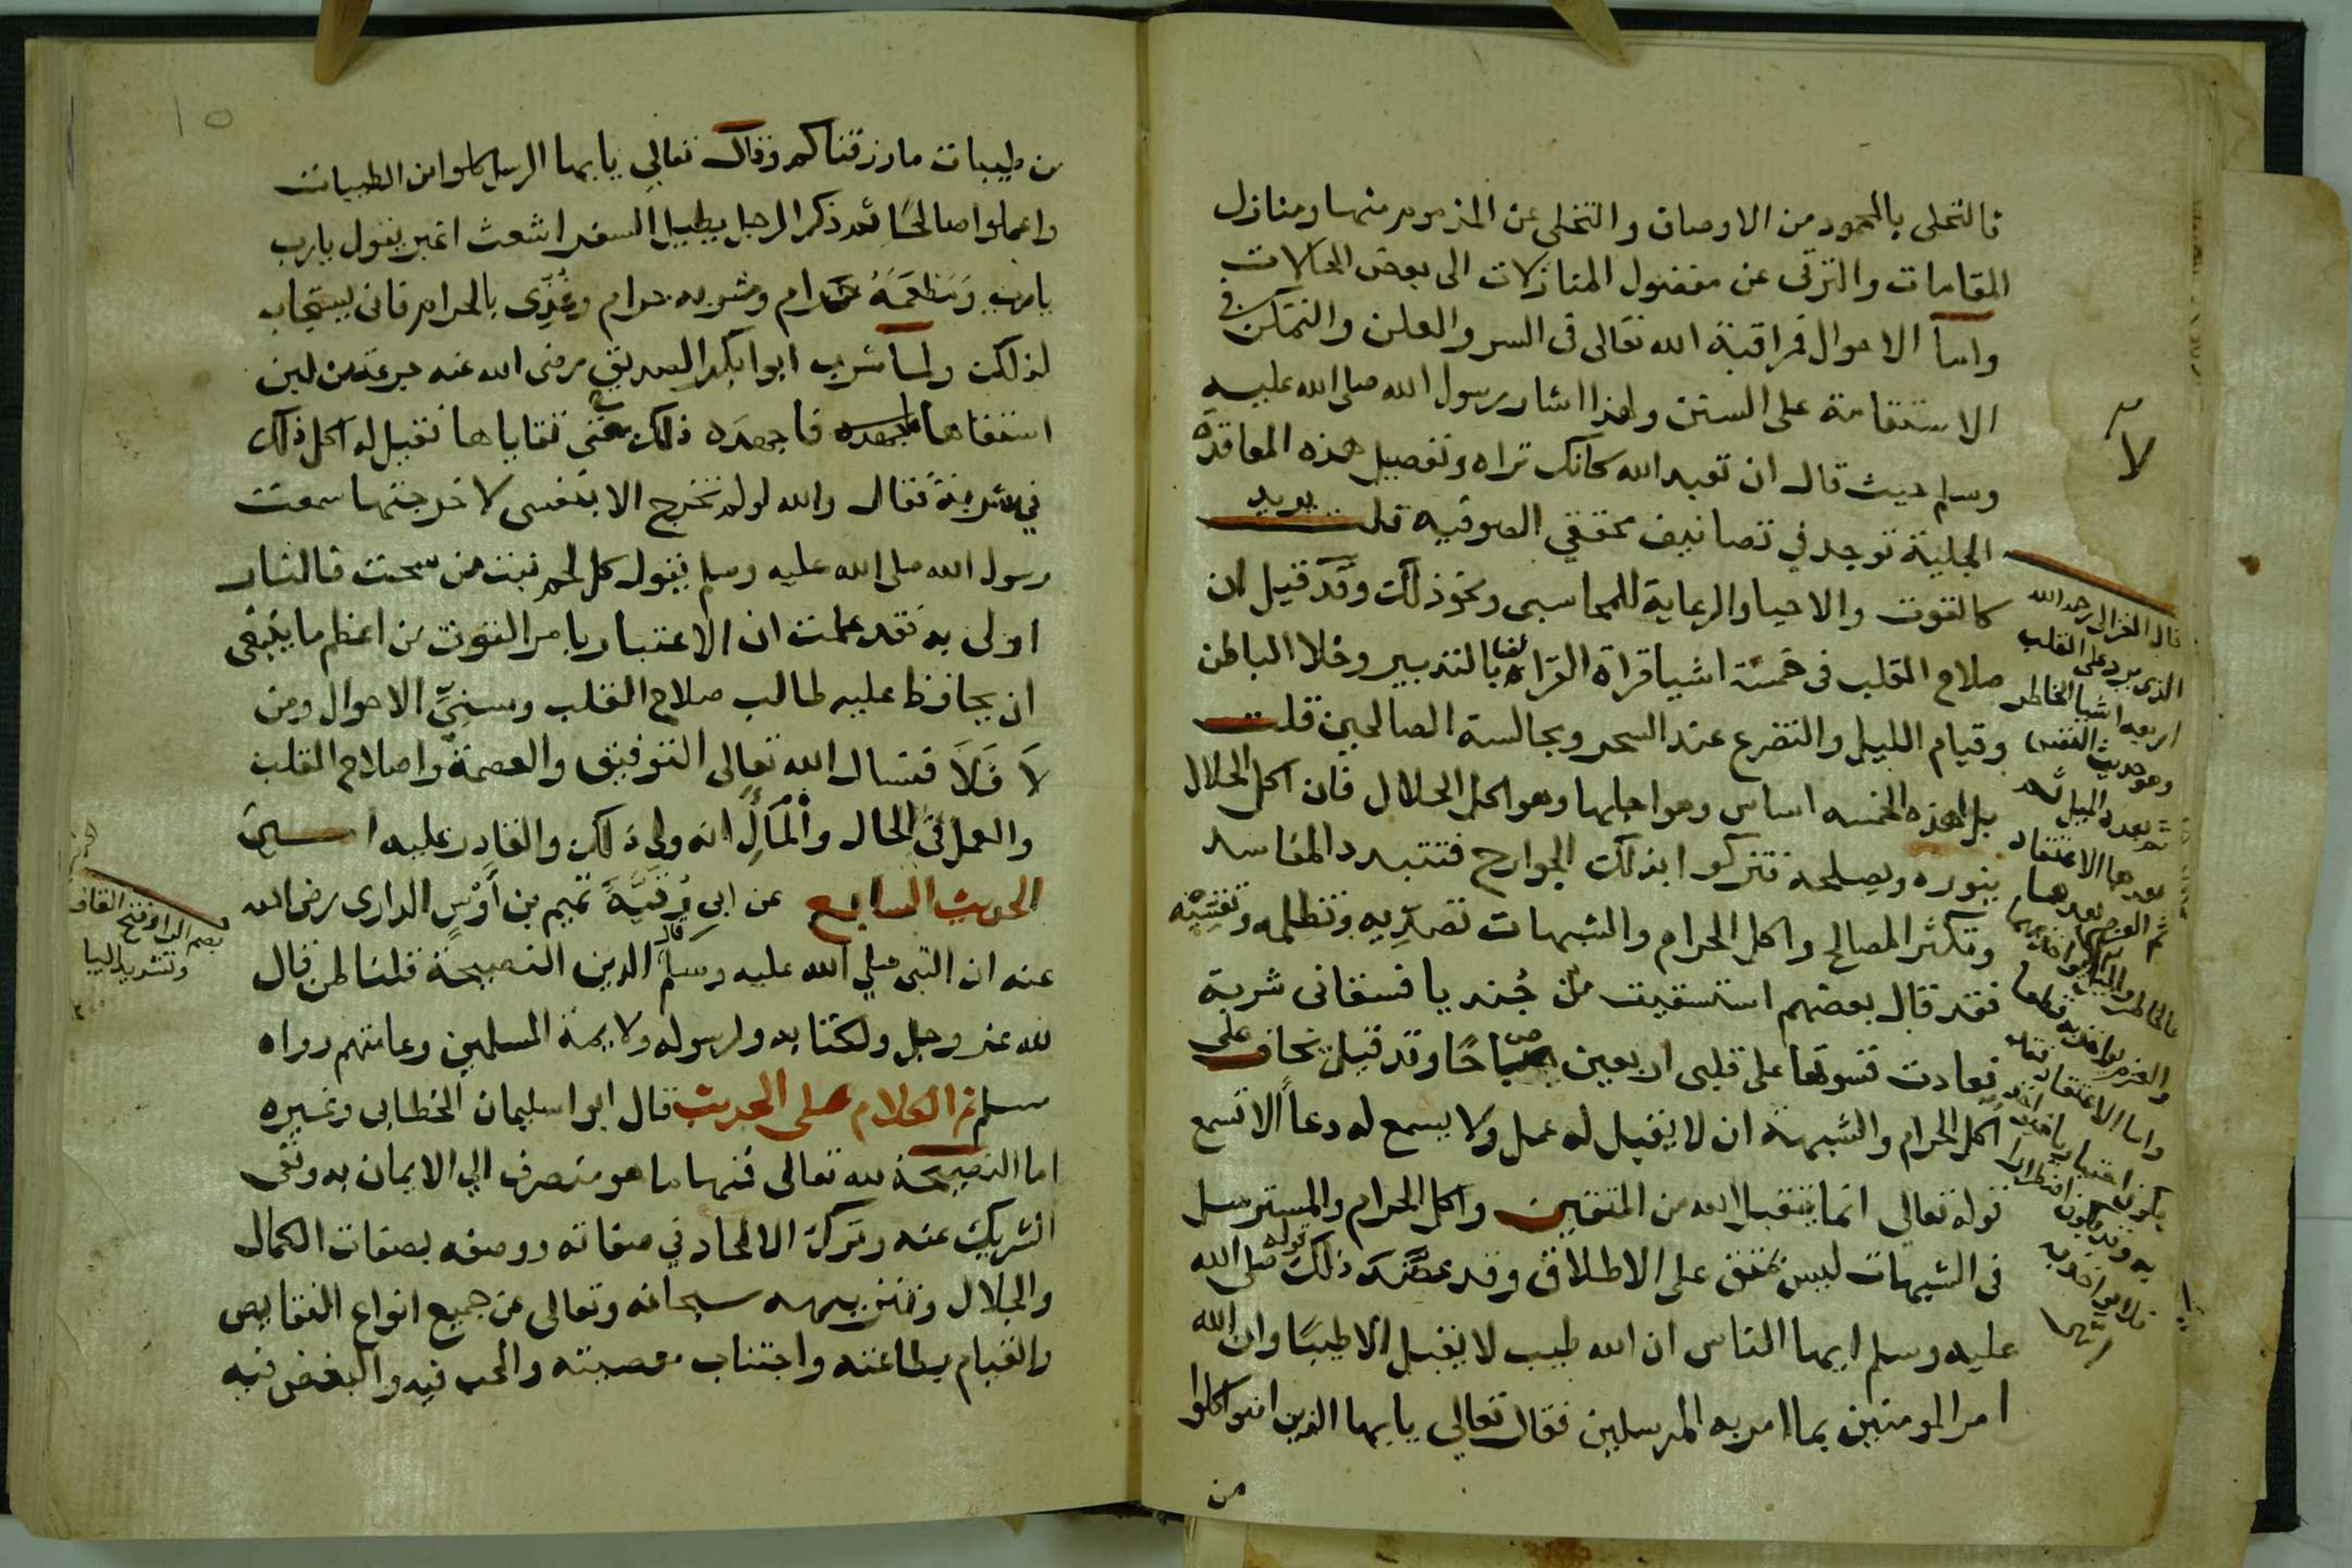 فالتحلى بالمحمود من الاوصاف والتخلى عن المذموم منها ومنازل
المقامات والترقى عن مفضول المنازلات الى بعض الحالات
واما الاحوال فمراقبة الله تعالى فى السر والعلن والتمكن فى
الاستقامة على السنن ولهذا اشار رسول الله صلى الله عليه
وسلم حيث قال ان تعبد الله كانك تراه وتفصيل هذه المعاقدة
الجلية توجد في تصانيف محققي الصوفيه قلت يريد
كالقوت والاحيا والرعاية للمحاسبى ونحو ذلك وقد قيل ان
صلاح القلب فى خمسة اشيا قراة القران بالتدبير وخلا الباطن
وقيام الليل والتضرع عند السحر ومجالسة الصالحين قلت
بل لهذه الخمسه اساس وهو اجلها وهو اكل الحلال فان اكل الحلال
ينوره ويصلحه فتزكوا بذلك الجوارح فتتبدد المفاسد
وتكثر المصالح واكل الحرام والشبهات تصدّيه وتظلمه وتقسّيه
فقد قال بعضهم استسقيت من جُنديا فسقانى شربة
فعادت قسوتها على قلبى اربعين صباحًا وقد قيل يخاف على
اكل الحرام والشبهة ان لا يقبل له عمل ولا يسمع له دعاً الا تسمع
قوله تعالي انما يتقبل الله من المتقين واكل الحرام والمسترسل
فى الشبهات ليس بمتق على الاطلاق وقد عضّد ذلك قوله صلى الله
عليه وسلم ايها الناس ان الله طيب لا يقبل الا طيبًا وان الله
امر المومنين بما امر به المرسلين فقال تعالي يايها الذين امنوا كلوا
من
لا
قال الغزالى رحمه الله
الذى يرد على القلب
اربعه اشيا الخاطر
وهو حديث النفس
ثم بعده الميل ثم
بعدها الاعتقاد
ثم العزم بعدها
١٥
من طيبات ما رزقناكم وقال تعالي يايها الرسل كلوا من الطيبات
واعملوا صالحًا ثم ذكر الرجل يطيل السفر اشعث اغبر يقول يارب
يارب ومَطعَمَهُ حَرام ومشربه حرام وغُذِّى بالحرام فانى يستجاب
لذلك ولما شرب ابو ابكر الصديق رضى الله عنه جرعة من لبن
استقاها فاجهده ذلك حتى تقاياها فقيل له اكل ذلك
في شربة فقال والله لو لم تخرج الا بنفسى لاخرجتها سمعت
رسول الله صلى الله عليه وسلم يقول كل لحم نبت من سحت فالنار
اولى به فقد علمت ان الاعتبار بامر القوت من اعظم ما ينبغى
ان يحافظ عليه طالب صلاح القلب وسنيِّ الاحوال ومن
لاَ فَلاَ فنسال الله تعالى التوفيق والعصمة واصلاح القلب
والعمل فى الحال والمآلِ انه ولى ذلك والقادر عليه امــين
الحديث السابع عن ابى رُقيَّة تميم بن أَوْسٍ الدارى رضى الله
عنه ان النبى صلي الله عليه وسلم قال الدين النصيحة قلنا لمن قال
لله عز وجل ولكتابه ولرسوله ولايمة المسلمين وعامتهم رواه
مسلم ثم الكلام على الحديث قال ابو اسليمان الخطابى وغيره
اما النصيحة لله تعالى فنها ما هو منصرف الي الايمان به ونفى
الشريك عنه وترك الالحاد في صفاته ووصفه بصفات الكمال
والجلال وتنزيهه سبحانه وتعالى عن جميع انواع النقايص
والقيام بطاعته واجتناب معصيته والحب فيه والبغض فيه
بضم الرا وفتح القاف
وتشديد اليا